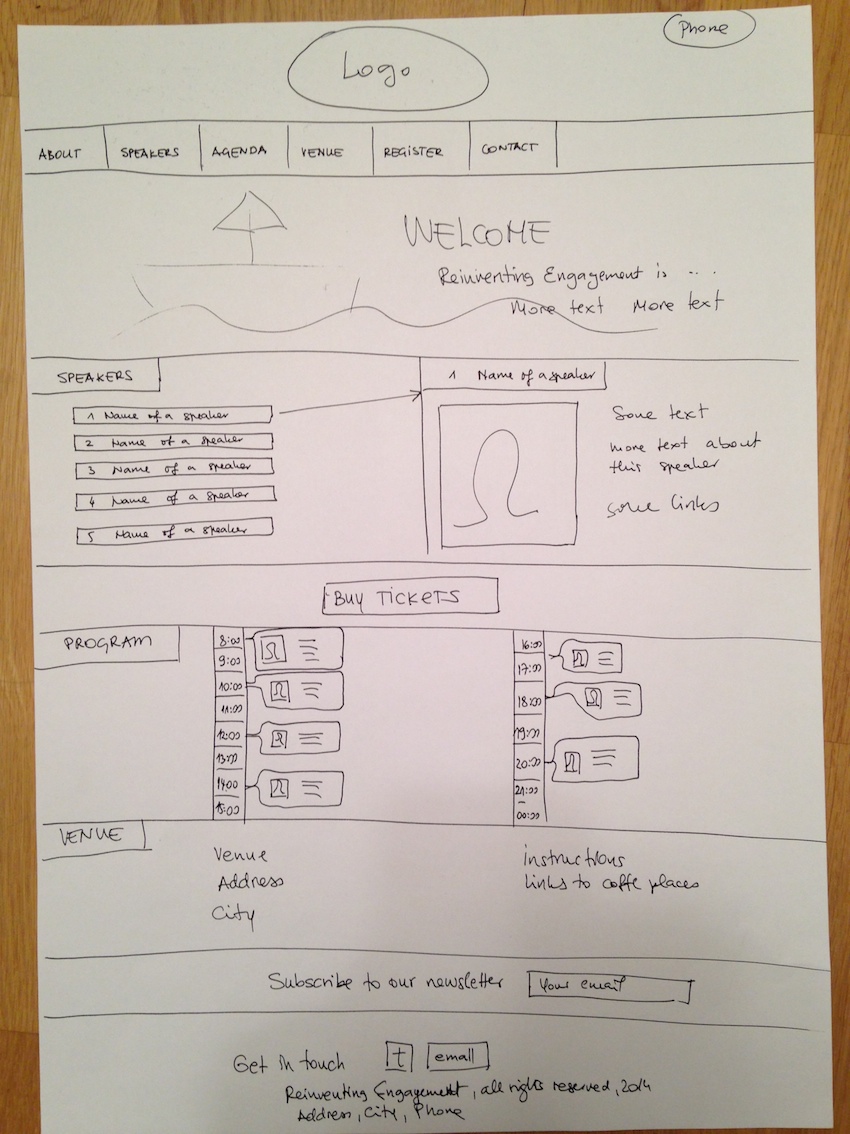 Phone
Logo
ABOUT
SPEAKERS
AGENDA
VENUE
REGISTER
CONTACT
WELCOME
Reinventing Engagement is ....
More text More text
SPEAKERS
1 Name of a speaker
2 Name of a speaker
3 Name of a speaker
4 Name of a speaker
5 Name of a speaker
1 Name of a speaker
Some text
more text about
this speaker
some links
BUY TICKETS
PROGRAM
8:00
9:00
10:00
11:00
12:00
13:00
14:00
15:00
16:00
17:00
18:00
19:00
20:00
21:00
–
00:00
VENUE
Venue
Address
City
instructions
Links to coffe places
Subscribe to our newsletter
Your email
Get in touch t email
Reinventing Engagement, all rights reserved, 2014
Address, City, Phone